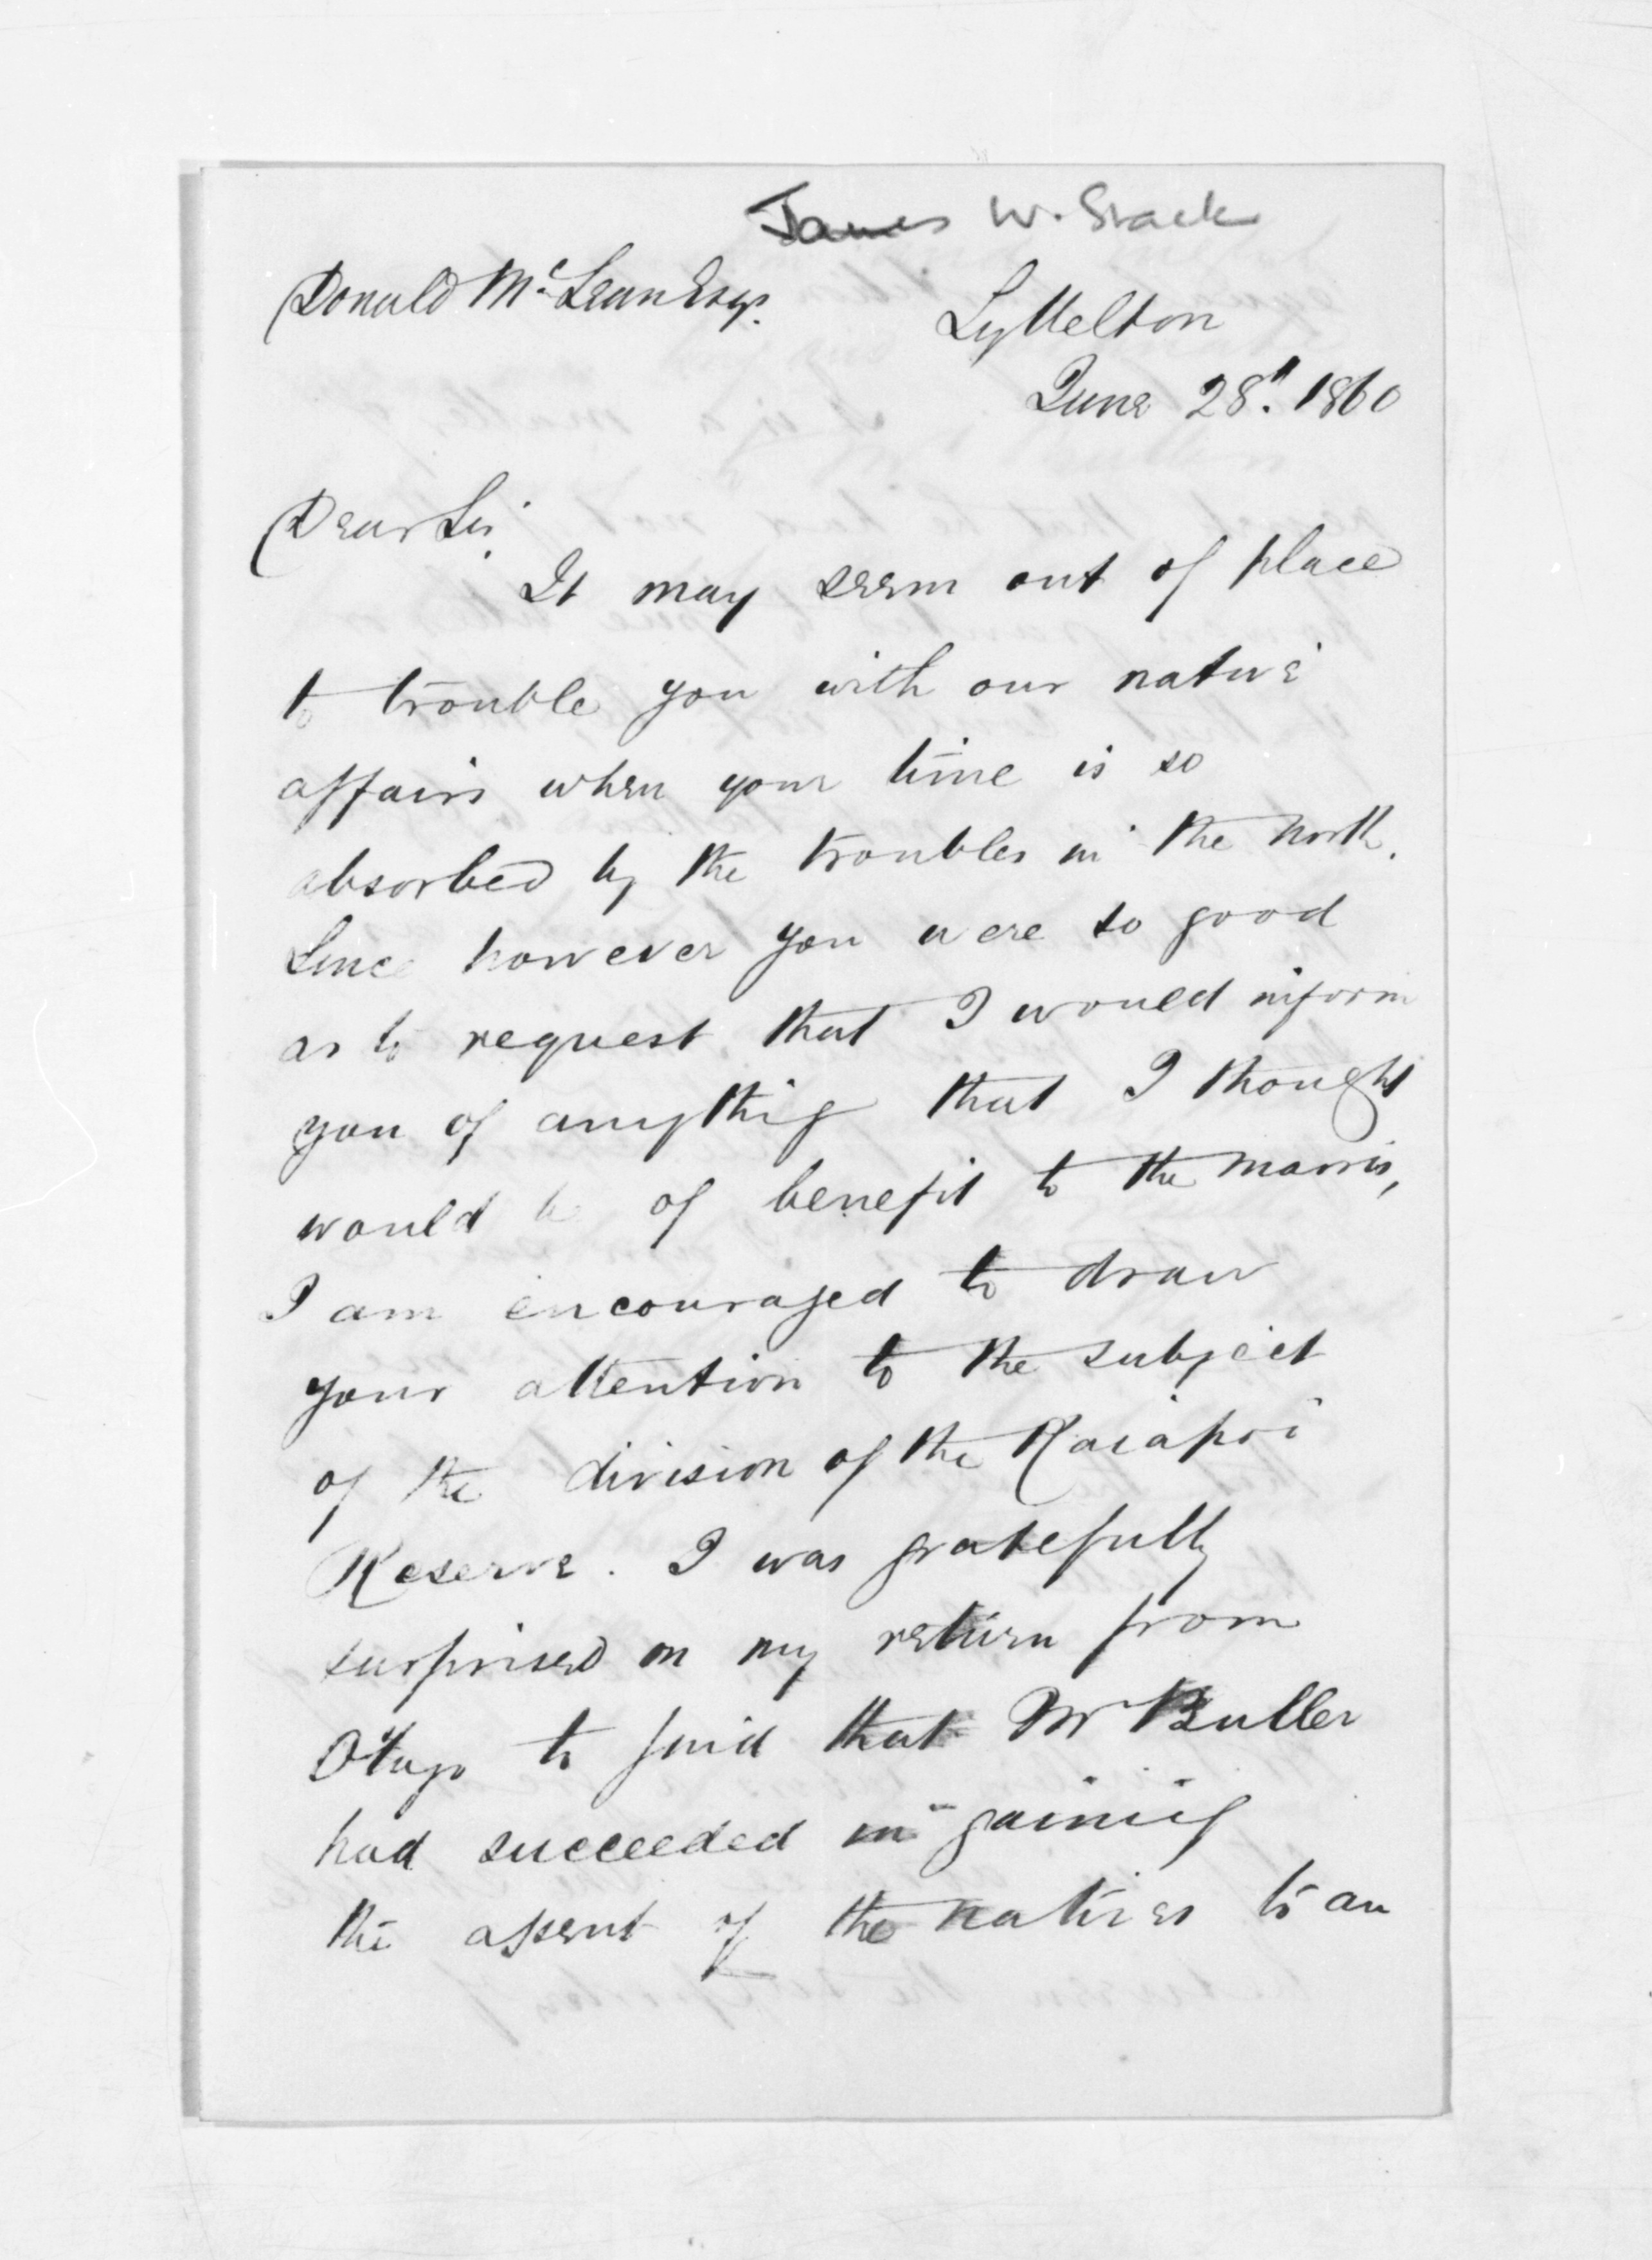 James W. Stack
Donald McLean Esqr.
Lyttelton
June 28th. 1860
Dear Sir,
It may seem out of place
to trouble you with our native
affairs when your time is so
absorbed by the troubles in the north.
Since however you were so good
as to request that I would inform
you of anything that I thought
would be of benefit to the maoris,
I am encouraged to draw
your attention to the subject
of the division of the Kaiapoi
Reserve. I was gratefully
surprised on my return from
Otago to find that Mr Buller
had succeeded in gaining
the assent of the natives to an